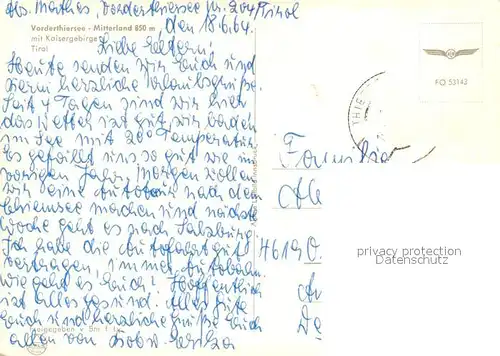 Abs. Mathes, Vorderthiersee Nr. 204/Tirol
Vorderthiersee - Mitterland 850 m
mit Kaisergebirge
Tirol
den 18.6.64
Liebe Eltern!
Heute senden wir Euch und
herzliche Urlaubsgrüße.
Seit 4 Tagen sind wir hier
das Wetter ist gut wir baden
im See mit 20° Temperatur
Es gefällt uns so gut wie im
vorigen Jahr, Morgen wollen
wir eine Autotour nach dem
Chiemsee machen und nächste
Woche geht es nach Salzburg.
Ich habe die Autofahrt gut
vertragen, immer Autobahn.
Wie geht es Euch? Hoffentlich
ist alles gesund. Alles Gute
Euch und herzliche Grüße Euch
allen von
freigegeben v.
THIE
FO 53142
Familie
4619 O.
privacy protection
Datenschutz